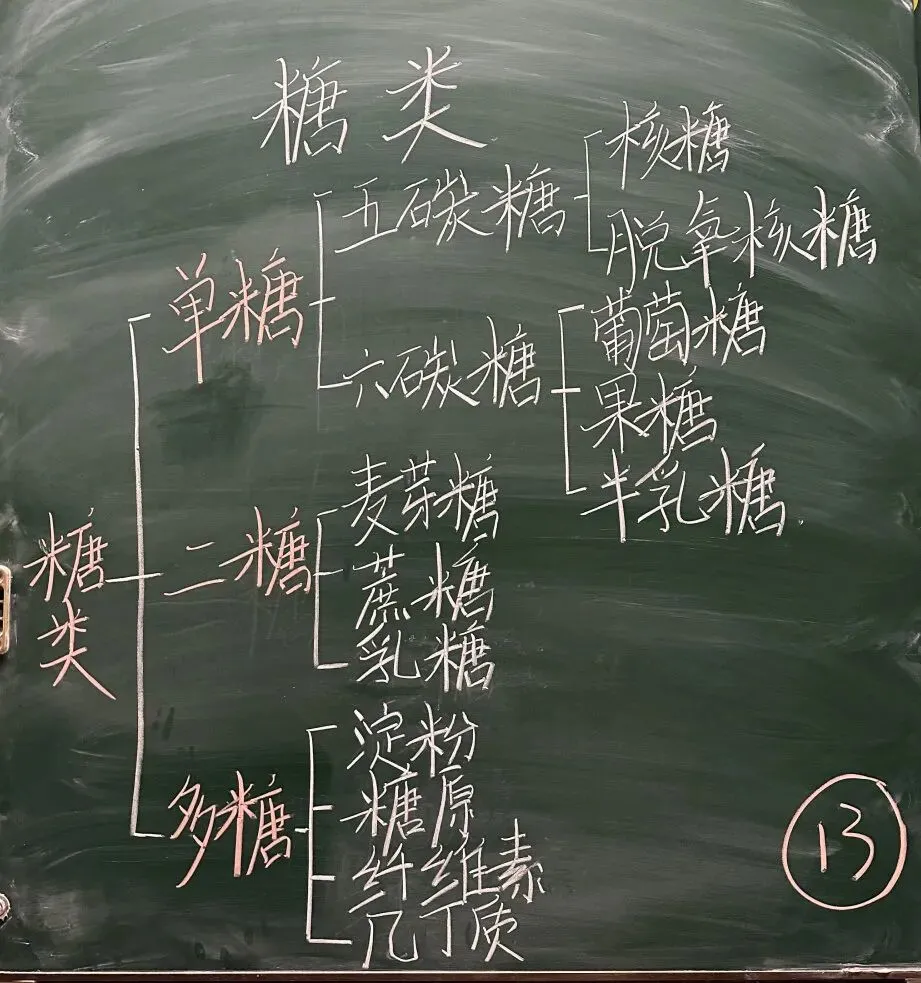 糖类
糖类
单糖
五碳糖
核糖
脱氧核糖
六碳糖
葡萄糖
果糖
半乳糖.
二糖
麦芽糖
蔗糖
乳糖
多糖
淀粉
糖原
纤维素
几丁质
13